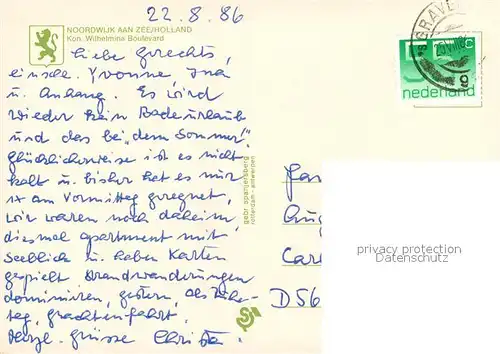 22.8.86
NOORDWIJK AAN ZEE/HOLLAND
Kon. Wilhelmina Boulevard
Liebe
einschl. Yvonne, Ina
u. Anhang. Es wird
wieder kein Badeurlaub
und das bei "dem Sommer".
Glücklicherweise ist es nicht
kalt u. bisher hat es nur
1x am Vormittag geregnet,
wir waren noch daheim,
diesmal apartment mit
Seeblick u. haben Karten
gespielt. Strandwanderungen
dominieren, gestern, als Ruhe-
tag, Grachtenfahrt.
Herzl. Grüsse Christa
nederland
gebr. spanjersberg
rotterdam - antwerpen
D56
privacy protection
Datenschutz